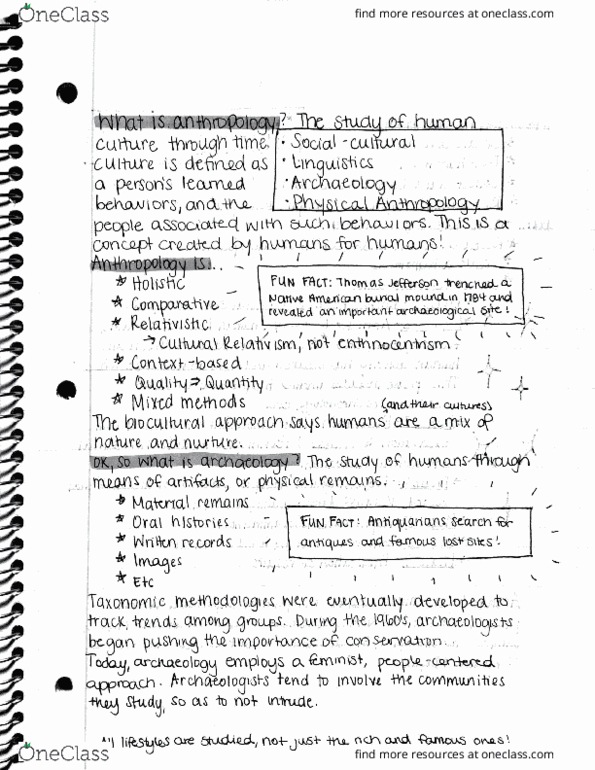 OneClass
find more resources at oneclass.com
What is anthropology? The study of human
culture through time.
culture is defined as
a person's learned
behaviors, and the
• Social-cultural
• Linguistics
• Archaeology
• Physical Anthropology
people associated with such behaviors. This is a
concept created by humans for humans!
Anthropology is...
* Holistic
* Comparative
* Relativistic
→ Cultural Relativism, not enthnocentrism
* Context-based
* Quality > Quantity
* Mixed methods
FUN FACT: Thomas Jefferson trenched a
Native American burial mound in 1784 and
revealed an important archaeological site!
(and their cultures)
The biocultural approach says humans are a mix of
nature and nurture.
OK, so what is archaeology? The study of humans through
means of artifacts, or physical remains.
* Material remains
* Oral histories
* Written records
* Images
* Etc
FUN FACT: Antiquarians search for
antiques and famous lost sites!
Taxonomic methodologies were eventually developed to
track trends among groups. During the 1960's, archaeologists
began pushing the importance of conservation.
Today, archaeology employs a feminist, people-centered
approach. Archaeologists tend to involve the communities
they study, so as to not intrude.
All lifestyles are studied, not just the rich and famous ones!
OneClass
find more resources at oneclass.com